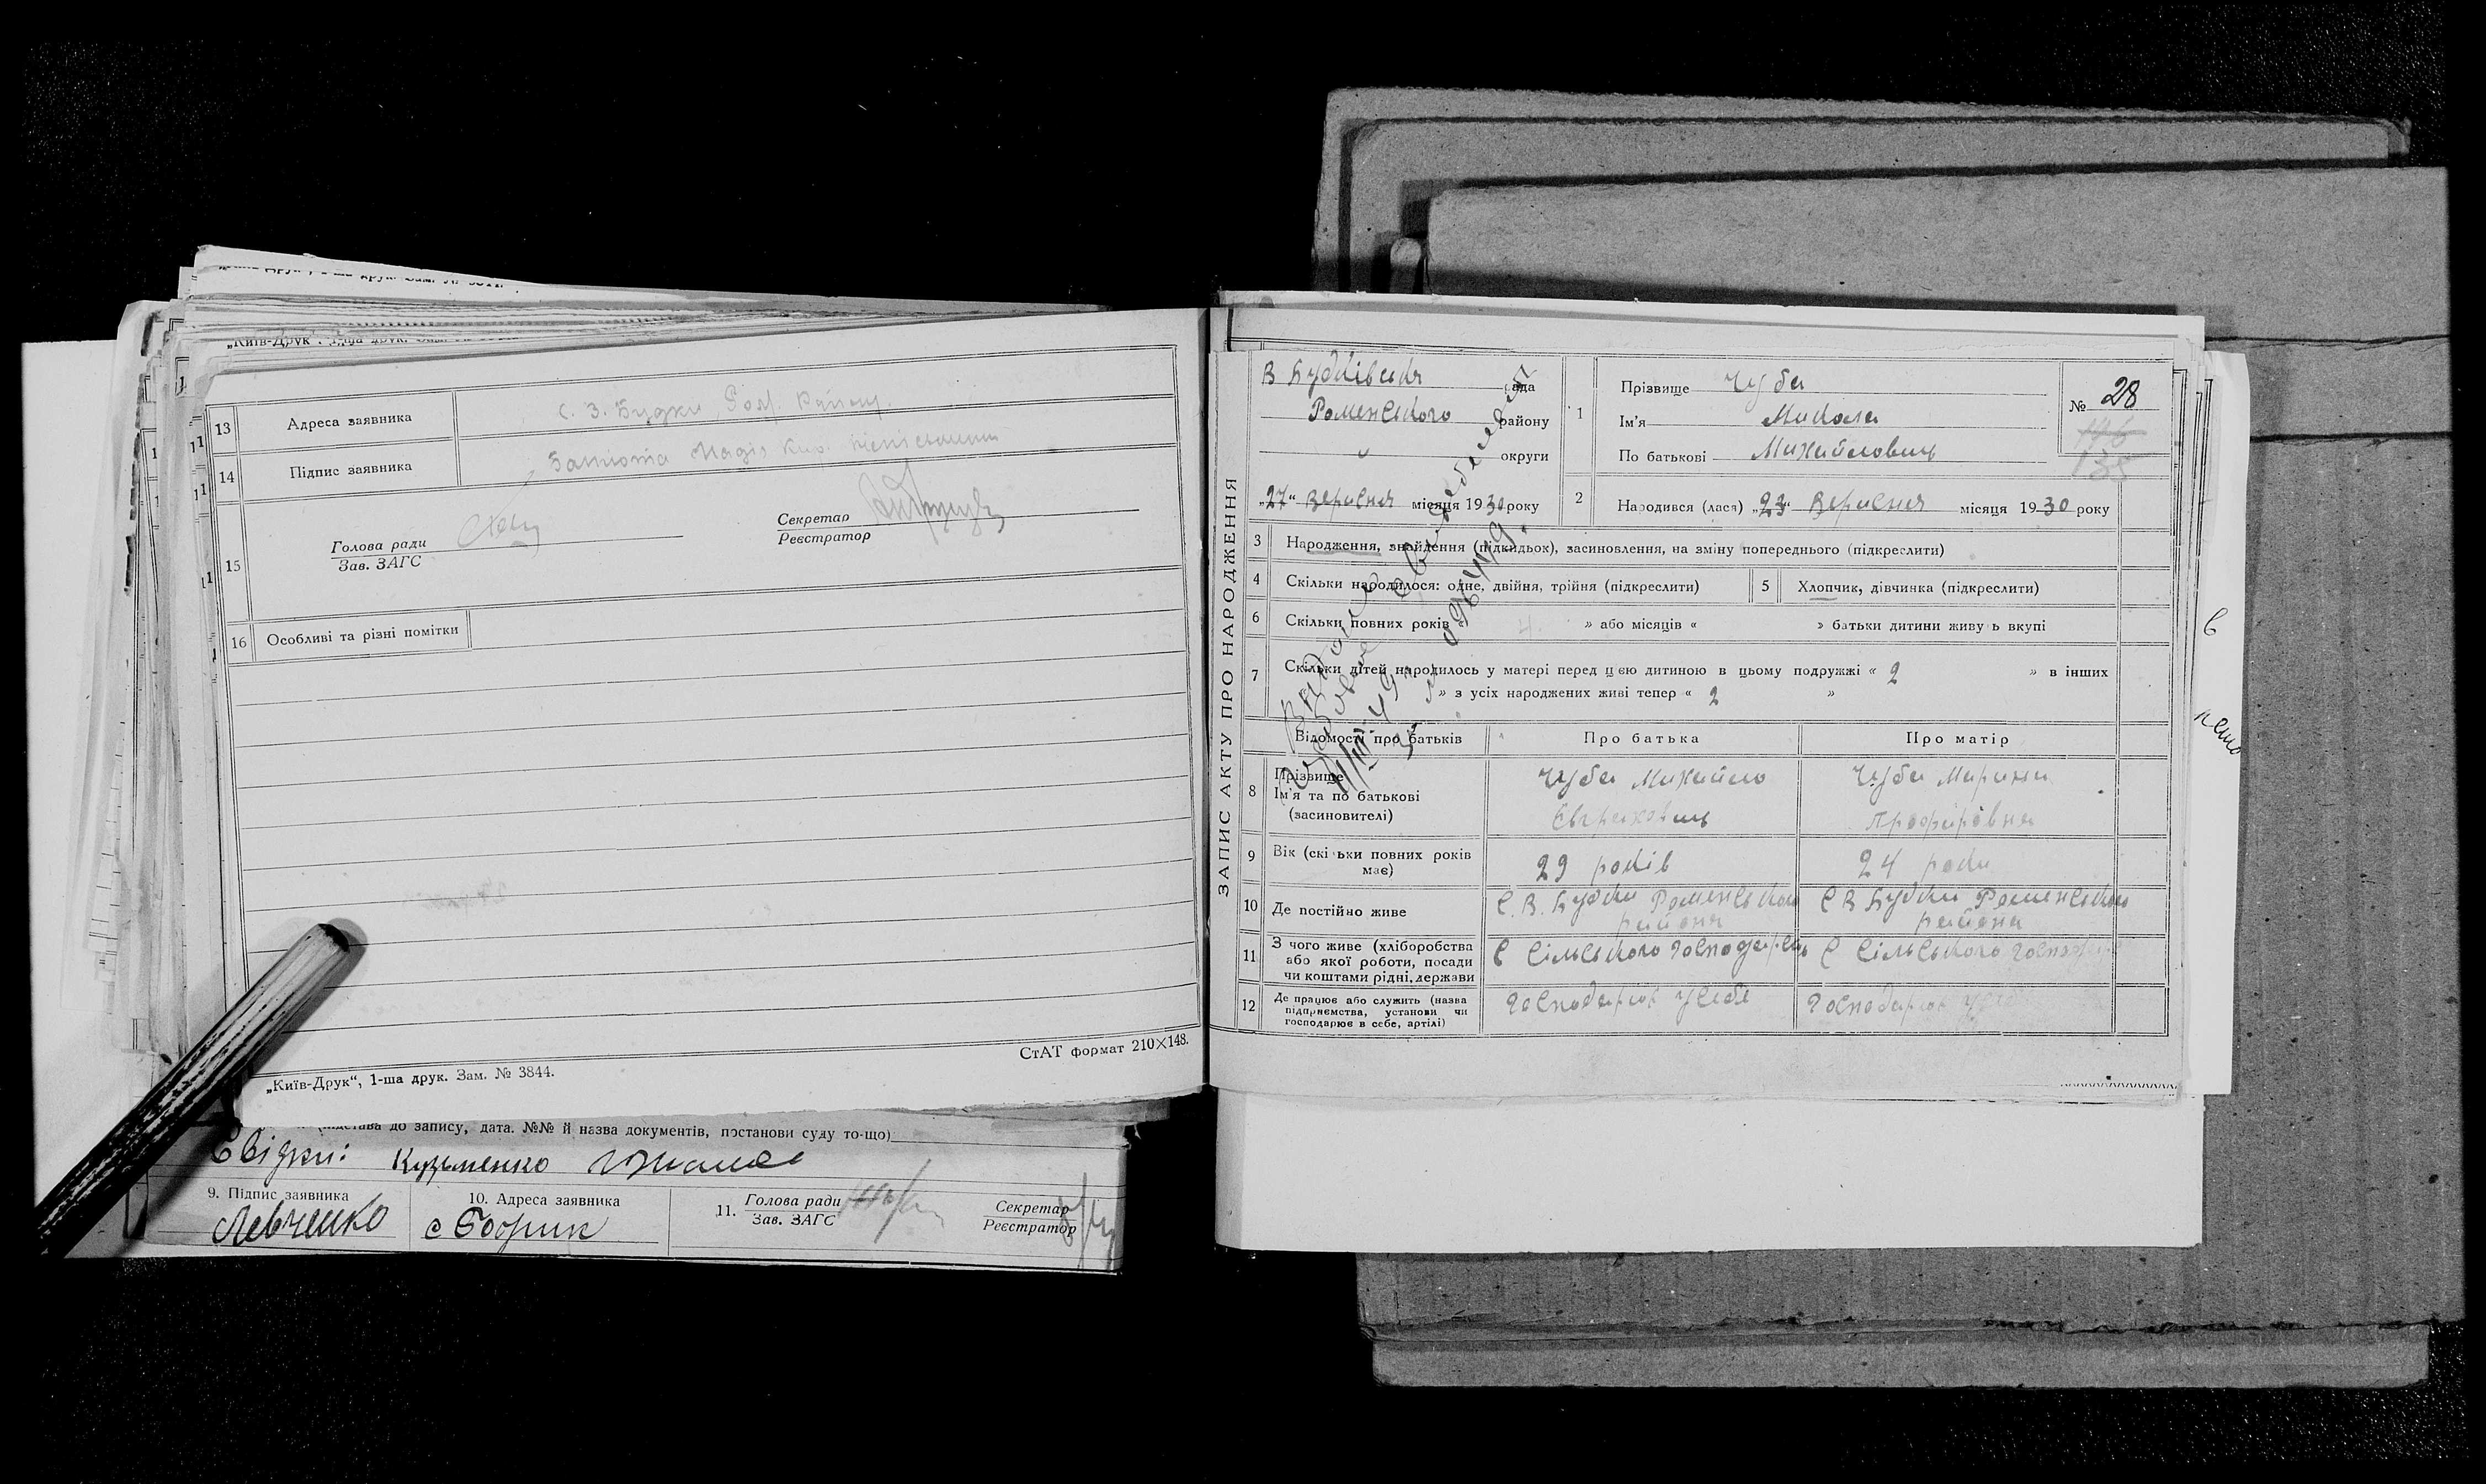 „Київ-Друк“, 1-ша друк.
13 Адреса заявника с. З. Будки, Ром. Району.
14 Підпис заявника
15 Голова ради
Зав. ЗАГС
Секретар
Реєстратор
16 Особливі та різні помітки
СтАТ формат 210×148.
„Київ-Друк“, 1-ша друк. Зам. № 3844.
до запису, дата. №№ й назва документів, постанови суду то-що)
Свідки: Кузьменко
9. Підпис заявника
Левченко
10. Адреса заявника
с
11. Голова ради
Зав. ЗАГС
Секретар
Реєстратор
ЗАПИС АКТУ ПРО НАРОДЖЕННЯ
В Будківська рада
Роменського району
" округи
„27“ Вересня місяця 1930 року
1 Прізвище Чуба
Ім'я Микола
По батькові Михайлович
№ 28
146
138
2 Народився (лася) „23“ Вересня місяця 1930 року
3 Народження, знайдення (підкидьок), засиновлення, на зміну попереднього (підкреслити)
4 Скільки народилося: одне, двійня, трійня (підкреслити)
5 Хлопчик, дівчинка (підкреслити)
6 Скільки повних років « 4. » або місяців « » батьки дитини живуть вкупі
7 Скільки дітей народилось у матері перед цією дитиною в цьому подружжі « 2 » в інших
» з усіх народжених живі тепер « 2 »
Відомості про батьків
Про батька
Про матір
8 Прізвище
Ім'я та по батькові
(засиновителі)
Чуба Михайло
Чуба Марина
9 Вік (скільки повних років
має)
29 років
24 роки
10 Де постійно живе
С. В. Будки Роменського
района
С В Будки Роменського
района
11 З чого живе (хліборобства
або якої роботи, посади
чи коштами рідні, держави
С Сільського господарств
С Сільського господар
12 Де працює або служить (назва
підприємства, установи чи
господарює в себе, артілі)
Господарює у себе
Господарює у